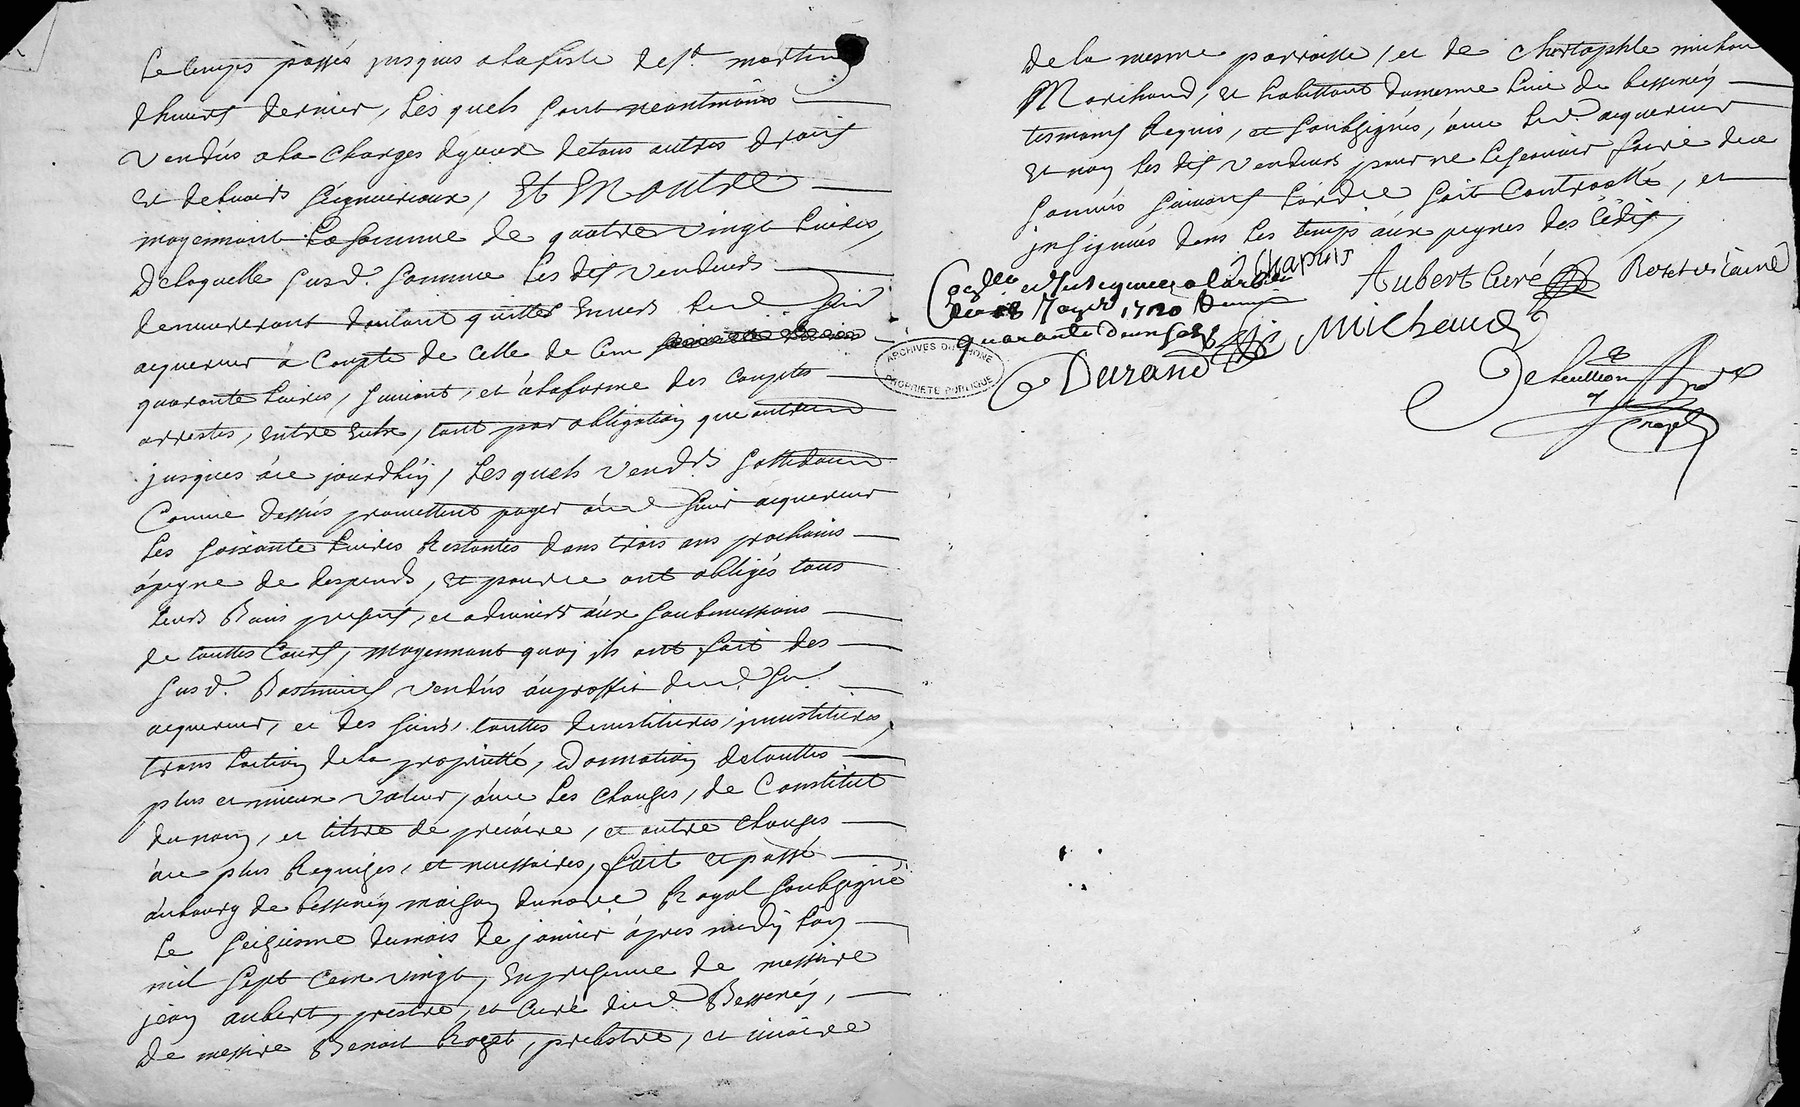 Le temps passés jusques a la feste de st martin
dhivert dernier, Les quels sont neantmoins
vendus a la charges dyceux de tous autres droits
et debvoirs seigneuriaux, Et En outre
moyennant La somme de quatre vingt Livres,
De laquelle susd. somme Les dits vendeurs
demeureront d'autant quittes Envers led. sieur
acquereur à Compte de Celle de Cent
quarante Livres, suivant, et à la forme des Comptes
arrestés, entre Eux, tant par obligation que autrem
jusques à ce jourdhuy, Lesquels vendrs solidaire
Comme dessus promettent payer aud sieur acquereur
Les soixante Livres Restantes dans trois ans prochains
à peyne de despends, et pour ce ont obligés tous
Leurs Biens presents, et advenirs aux soubmissions
de touttes Cours, moyennant quoy ils ont fait des
susd. Bastiments vendus au proffit dud. sr.
acquereur, et des siens, touttes devestitures, investitures,
translation de la proprietté, Donnation de touttes
plus et mieux valeur, avec Les clauses, de Constitut
du nom, et tiltre de precaire, et autre clauses
à ce plus Requises, et necessaires, fait et passé
au bourg de bessenay maison du no.re Royal soubsigné
Le seiziesme du mois de janvier apres midy L'an
mil sept cent vingt, En presence de messire
jean aubert, prestre, et Curé dud Bessenay,
de messire Benoit Rozet, prebstre, et vicaire
de la mesme parroisse, et de Christophle michau
Marchand, et habittant du mesme Lieu de bessenay
tesmoins Requis, et soubsignés, avec led. acquereur
et non les dits vendeurs pour ne le sçavoir faire de ce
sommés suivant L'ordce soit Controollé, et
insignués dans les temps aux peynes des Edits,
Chapuis
Aubert Curé
Rozet vicaire
1720
quarante deux sols
Michaud
Durand
ARCHIVES DU RHONE
PROPRIETE PUBLIQUE